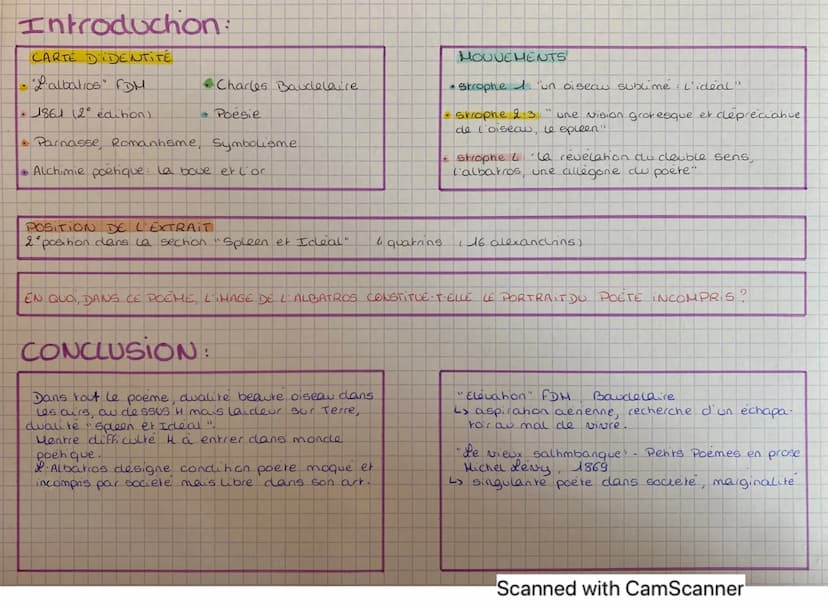 Introduction:
CARTE D'IDENTITÉ
"L'albatros" FDM
Charles Baudelaire
1861 (2e édition)
Poésie
Parnasse, Romantisme, Symbolisme
Alchimie poétique: la boue et l'or
MOUVEMENTS
strophe 1 "un oiseau sublime: l'idéal"
strophe 2-3 "une vision grotesque et dépréciative
de l'oiseau, le spleen"
strophe 4 "la révélation du double sens,
l'albatros, une allégorie du poète"
POSITION DE L'EXTRAIT
2e position dans la section "Spleen et Idéal" 4 quatrins (16 alexandrins)
EN QUOI, DANS CE POÈME, L'IMAGE DE L'ALBATROS CONSTITUE-T-ELLE LE PORTRAIT DU POÈTE INCOMPRIS?
CONCLUSION:
Dans tout le poème, dualité beauté oiseau dans
les airs, au dessus H mais laideur sur Terre,
dualité "Spleen et Idéal".
Montre difficulté H à entrer dans monde
poétique.
L'Albatros désigne condition poète moqué et
incompris par société mais libre dans son art.
"Élévation" FDM, Baudelaire
↳ aspiration aérienne, recherche d'un échapa-
toir au mal de vivre.
"Le vieux saltimbanque" - Petits Poèmes en prose
Michel Lévy, 1869
↳ singularité poète dans société, marginalité
Scanned with CamScanner